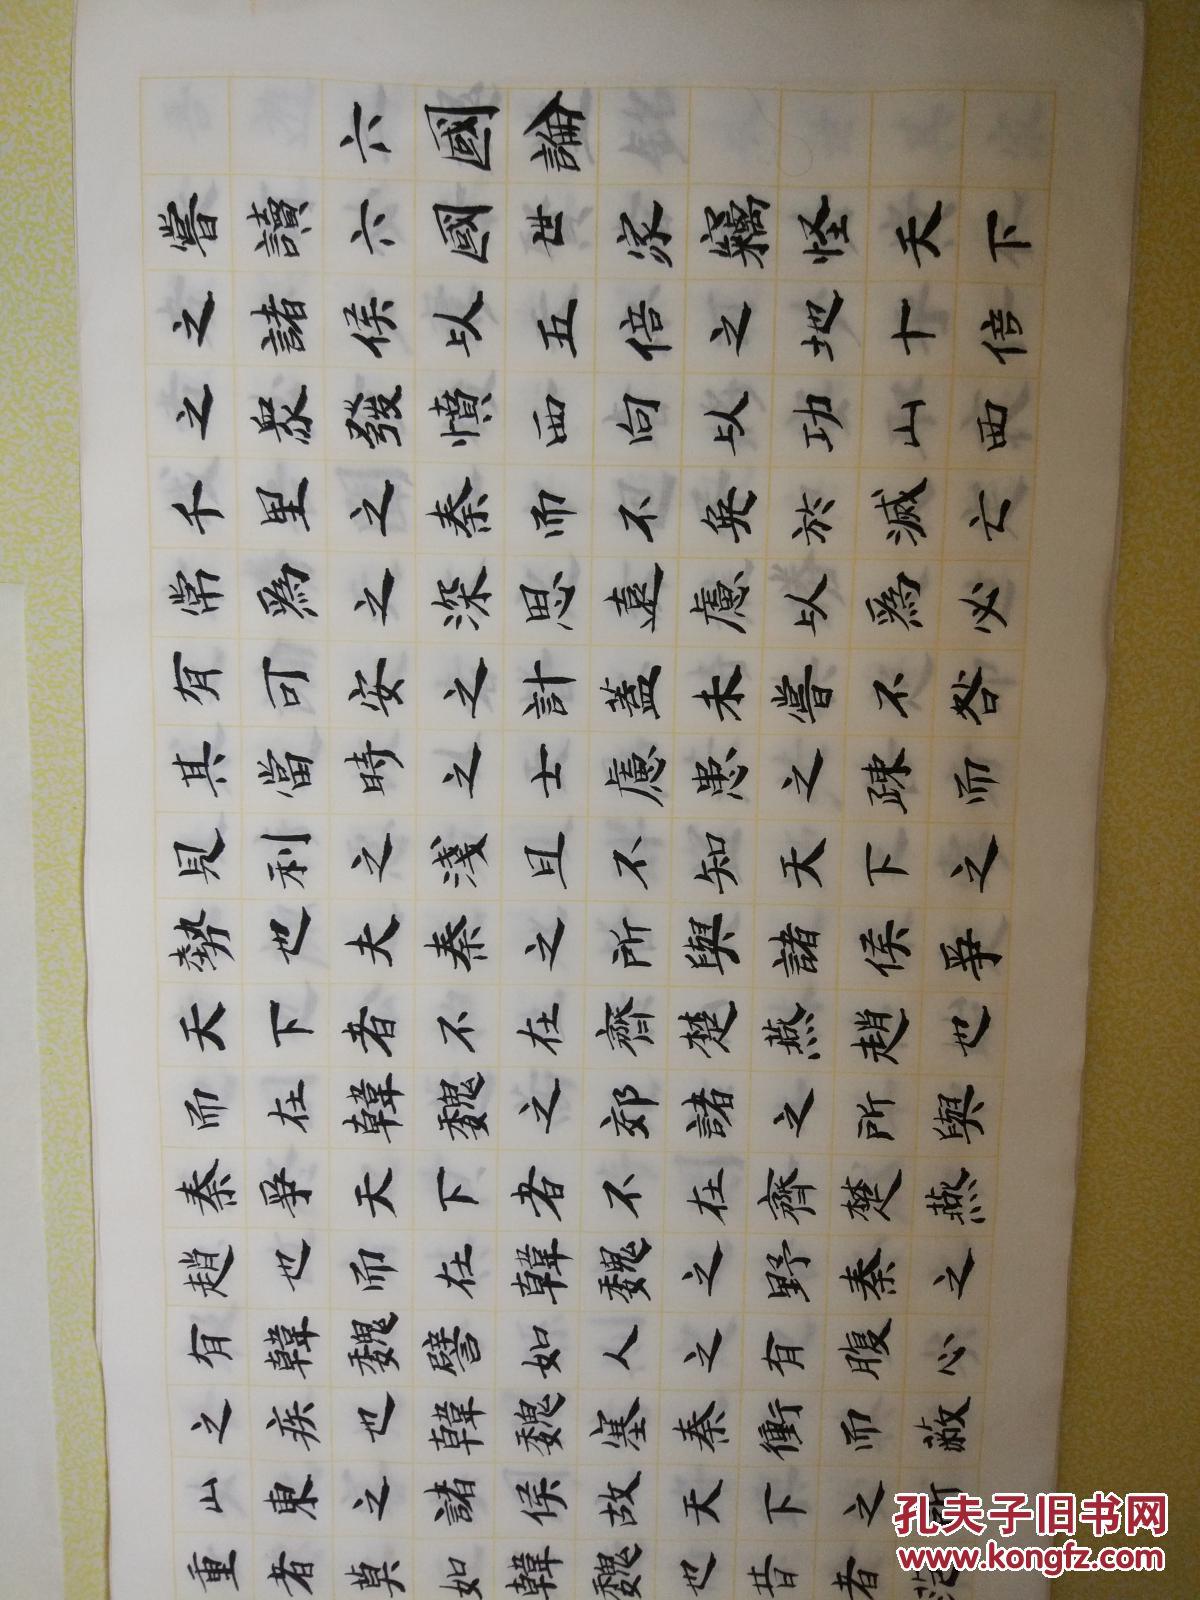 六國論
嘗讀六國世家竊怪天下
之諸侯以五倍之地十倍
之衆發憤西向以功山西
千里之秦而不免於滅亡
常爲之深思遠慮以爲必
有可安之計蓋未嘗不咎
其當時之士慮患之疎而
見利之淺且不知天下之
勢也夫秦之所與諸侯爭
天下者不在齊楚燕趙也
而在韓魏之郊諸之所與
秦爭天下者不在齊楚燕
趙也而在韓魏之野秦之
有韓魏譬如人之有腹心
之疾也韓魏塞秦衝而蔽
山東之諸侯故天下之所
重者莫如韓魏也昔者范
孔夫子旧书网
www.kongfz.com